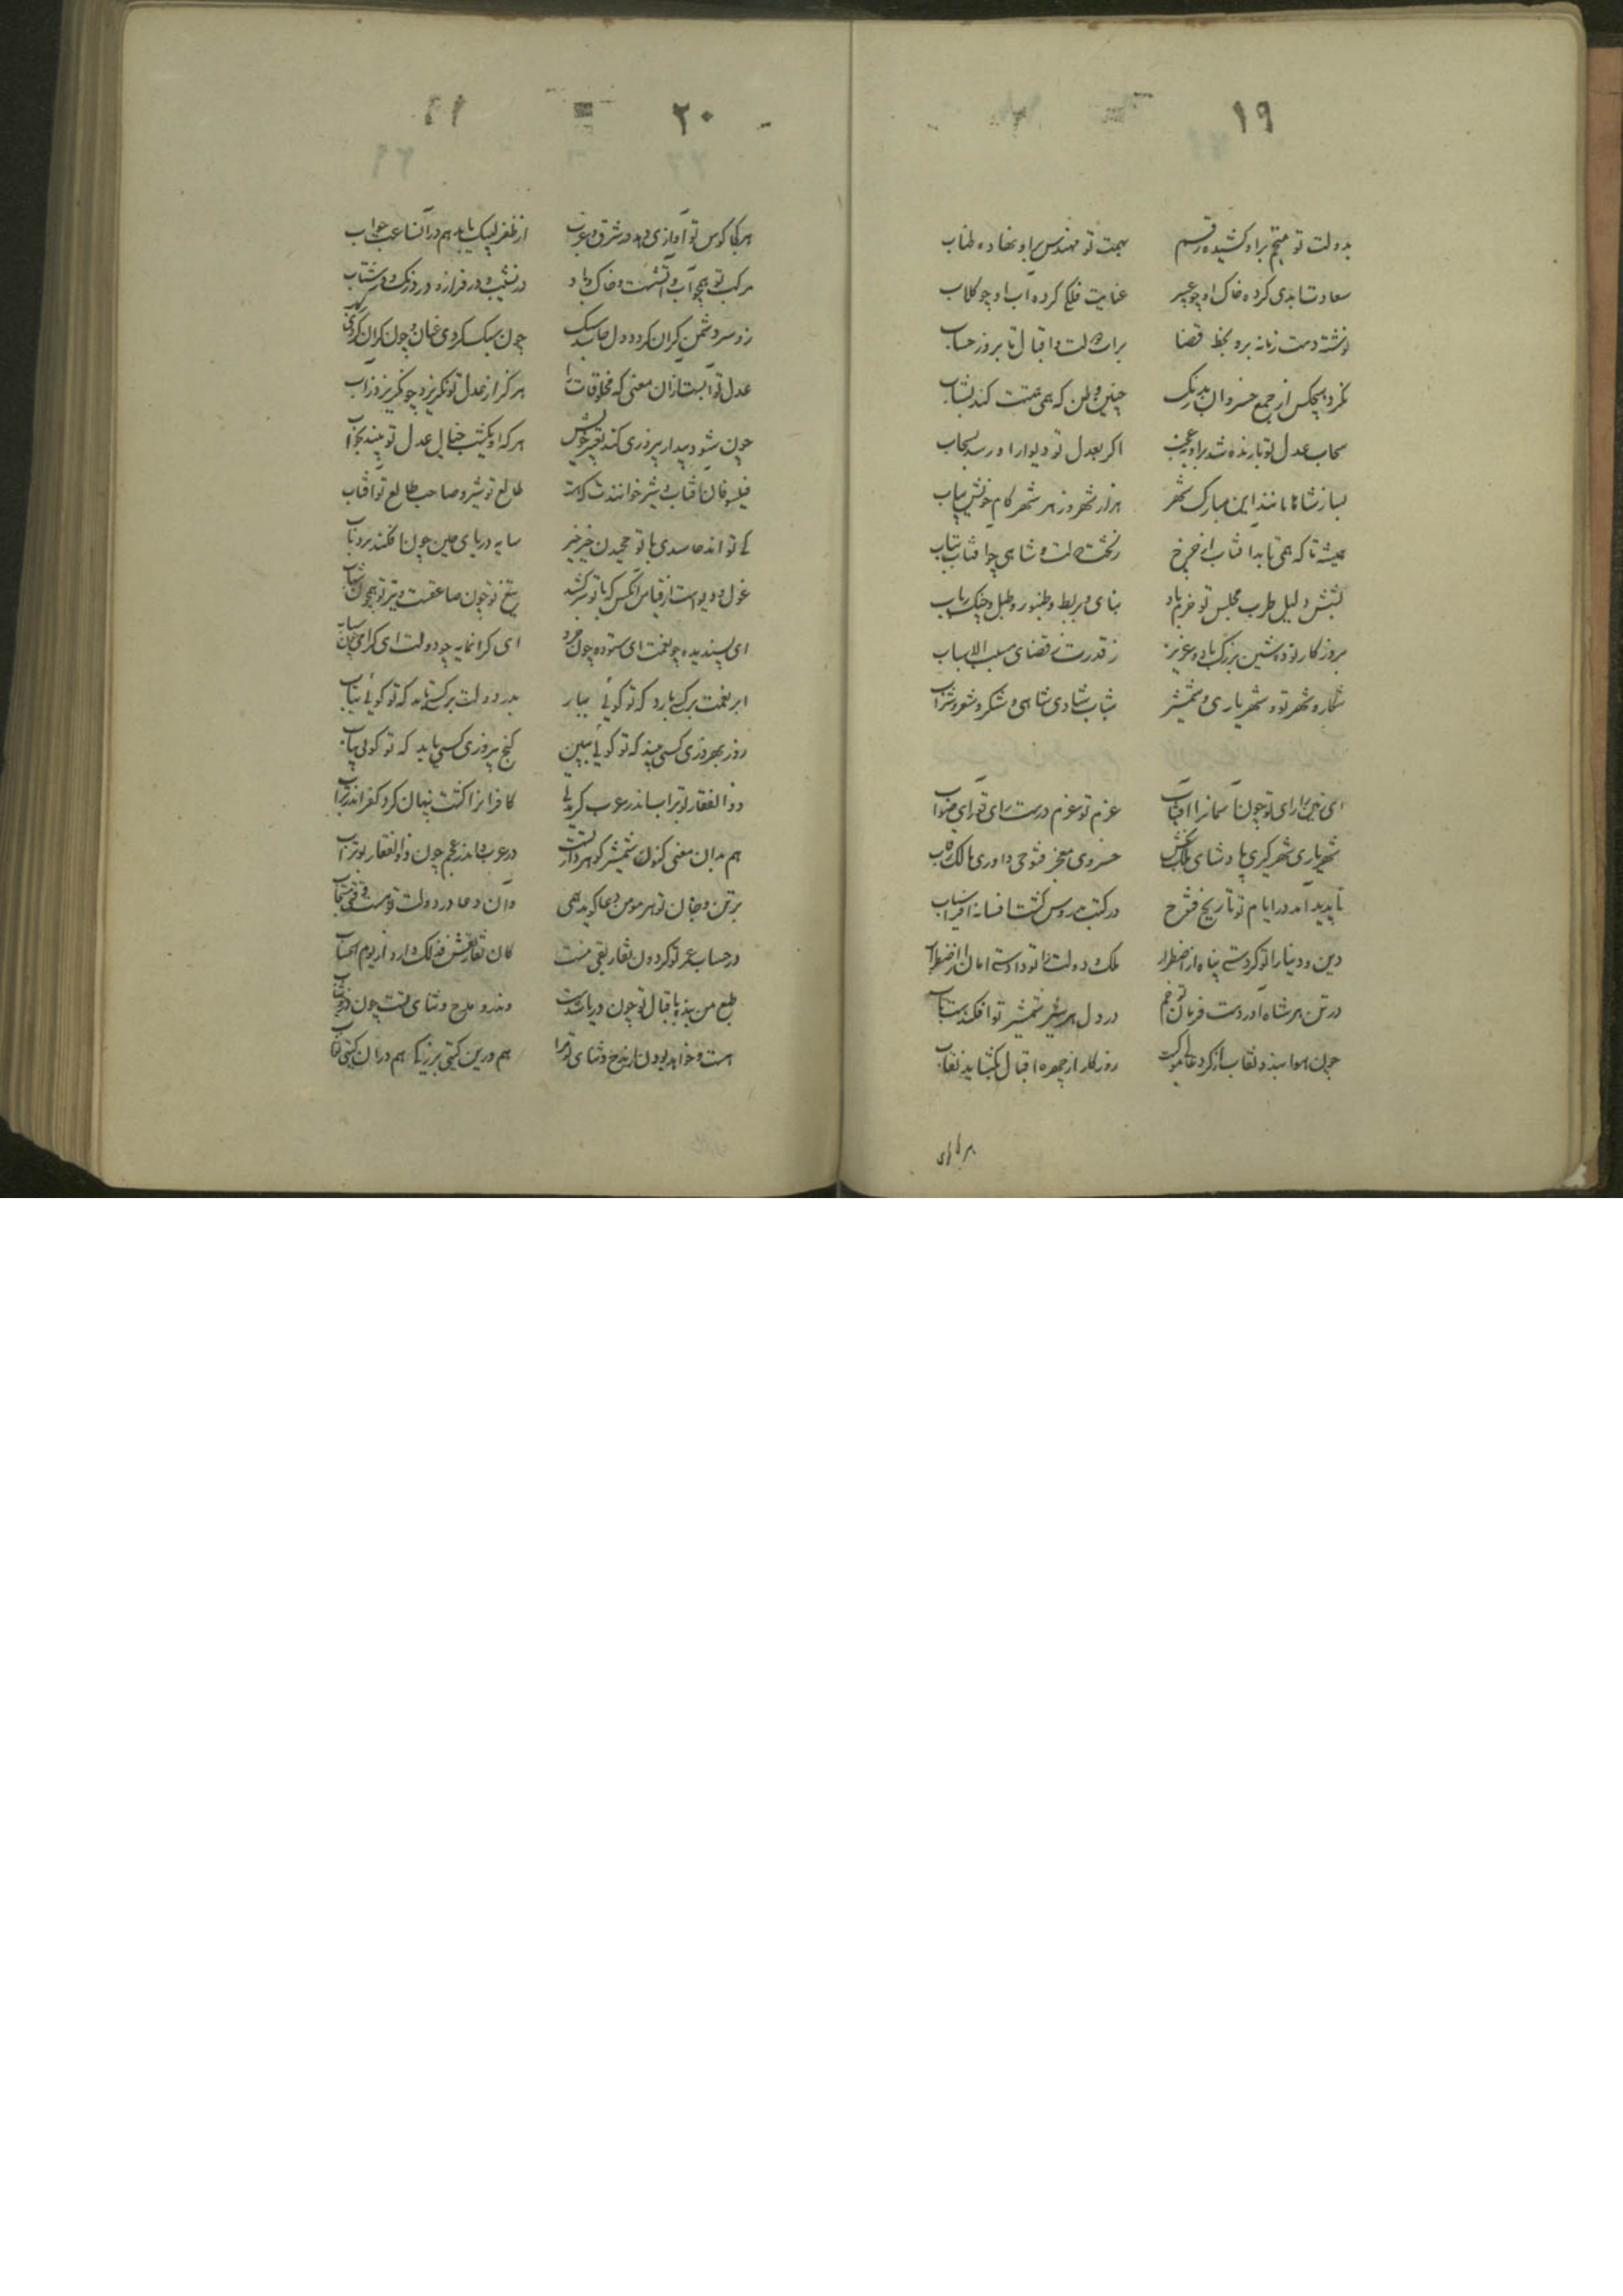 ۱۹
بدولت تو منجم براو کشیده رقم بهمت تو مهندس براو نهاده طناب
سعادت ابدی کرده خاک او چو عبیر عنایت فلکی کرده آب او چو کلاب
نوشته دست زمانه برو بخط قضا برات دولت و اقبال تا بروز حساب
نکرد هیچکس از جمع خسروان بدرنک چنین وطن که همی همتت کند بشتاب
سحاب عدل تو بارنده شد براو نه عجب اکر بعدل تو دیوار او رسد بسحاب
بساز شاها مانند این مبارک شهر هزار شهر و ز هر شهر کام خویش بیاب
همیشه تا که همی تابد آفتاب از چرخ ز تخت دولت و شاهی چو آفتاب بتاب
بنای و بربط و طنبور و طبل و چنک و رباب
بروزکار تو دوشین بزرک باد و عزیز ز قدرت و قضای مسبب الاسباب
شکار و شهر تو و شهریاری و شمشیر شباب و شادی و شاهی و شکر و شعر و شراب
ای زمین را رای تو چون آسمانرا آفتاب عزم تو عزم درست و رای تو رای صواب
شهریاری شهرکیری پادشاهی ملک بخش خسروی معجز فتوحی داوری مالک رقاب
تا پدید آمد در ایام تو تاریخ فتوح در کتب مدروس کشت افسانه افراسیاب
دین و دنیا را تو کردستی پناه از اضطرار ملک و دولت را تو دادستی امان از اضطراب
در تن هر شاه آوردست فرمان تو خم در دل هر شیر شمشیر تو افکندست تاب
چون هوا بندد نقاب از کرد عالی موکبت روزکار از چهره اقبال بکشاید نقاب
۲۰
هر کجا کوس تو آوازی دهد در شرق و غرب از ظفر لبیک یابد هم در آن ساعت جواب
مرکب تو همچو آب و آتشست و خاک و باد در نشیب و در فراز و در درنک و در شتاب
زو سر دشمن کران کردد دل حاسد سبک چون سبک کردی عنان و چون کران کردی رکاب
عدل تو آبست از آن معنی که مخلوقات را هرکز از عدل تو نکریزد چو نکریزد ز آب
چون شود بیدار پیروزی کند تعبیر خویش هر که او یکشب خیال عدل تو بیند بخواب
فیلسوفان آفتاب و شیر خوانندت که هست طالع تو شیر و صاحب طالع تو آفتاب
کی تواند حاسدی با تو چخیدن خیر خیر سایه دریای چین چون افکند بر وی تاب
غول و دیو است از قیاس آنکس که با تو سر کشد تیغ تو چون صاعقست و تیر تو همچون شهاب
ای پسندیده چو نعمت ای ستوده چون خرد ای کرانمایه چو دولت ای کرامی چون شباب
ابر نعمت بر کسی بارد که تو کوئی ببار بدر دولت بر کسی تابد که تو کوئی بتاب
روز بهروزی کسی بیند که تو کوئی ببین کنج پیروزی کسی یابد که تو کوئی بیاب
ذوالفقار بوتراب اندر عرب کر بدلی کافرانرا کشت پنهان کرد کفر اندر تراب
هم بدان معنی کنون شمشیر کوهردار تست در عرب و اندر عجم چون ذوالفقار بوتراب
بر تن و جان تو هر مومن دعا کوید همی وان دعا در دولت تو هست وقفی مستجاب
در حساب عمر تو کردون تفاریقی منست کان تفاریقش فذلک دارد از یوم الحساب
طبع من بنده باقبال تو چون دریا شدست وندرو مدح و ثنای تست چون در خوشاب
هست و خواهد بودن از مدح و ثنای تو مرا هم در این کیتی بزرکی هم در آن کیتی ثواب